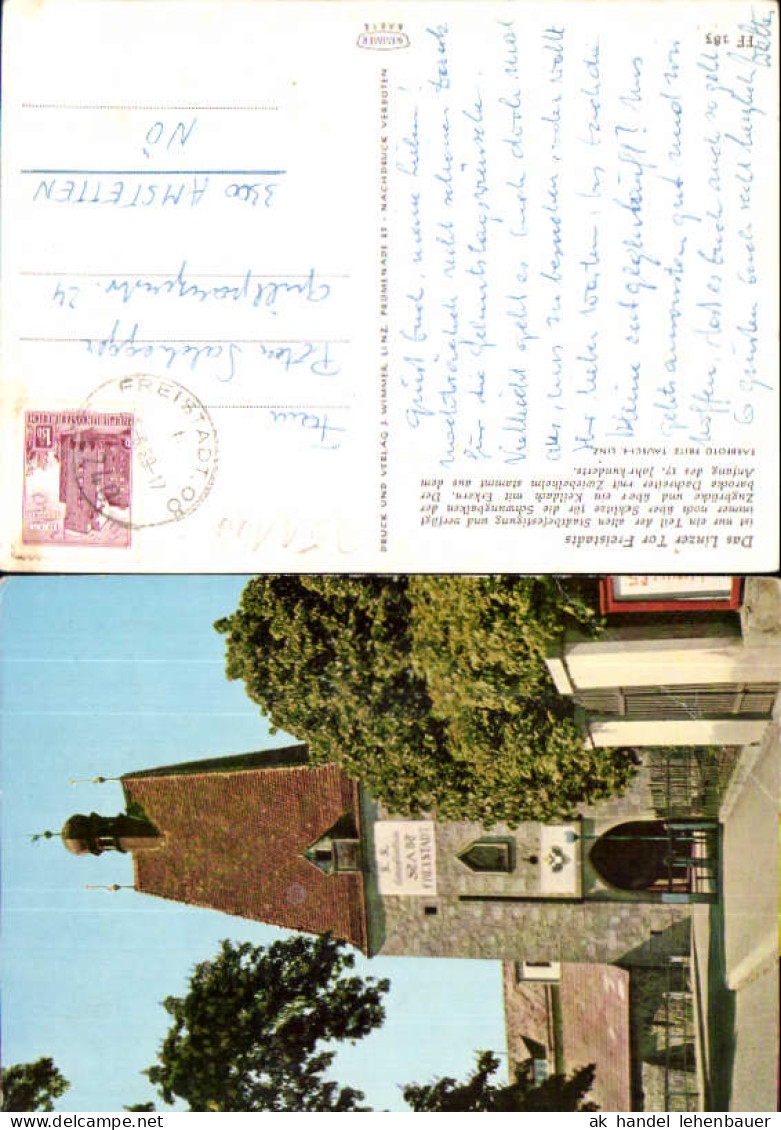 Das Linzer Tor Freistadts
ist nur ein Teil der alten Stadtbefestigung und verfügt
immer noch über Schlitze für die Schwungbalken der
Zugbrücke und über ein Keildach mit Erkern. Der
barocke Dachreiter mit Zwiebelhelm stammt aus dem
Anfang des 17. Jahrhunderts.
FARBFOTO FRITZ TAUSCH, LINZ
Grüß Euch, meine Lieben!
Nachträglich recht schönen Dank
für die Geburtstagswünsche.
Vielleicht geht es Euch doch mal
aus, uns zu besuchen, oder wollt
Ihr lieber warten, bis Euch die
Kleine entgegenläuft? Uns
geht's ansonsten gut und wir
hoffen, daß es Euch auch so geht.
Es grüßen Euch recht herzlich
FF 383
WIMMER
KARTE
DRUCK UND VERLAG J. WIMMER, LINZ, PROMENADE 23 - NACHDRUCK VERBOTEN
FREISTADT, OÖ
1
69-17
REPUBLIK ÖSTERREICH
1.50
Fam.
Peter
Grillparzerstr. 24
3300 AMSTETTEN
NÖ
FREISTADT
ak handel lehenbauer